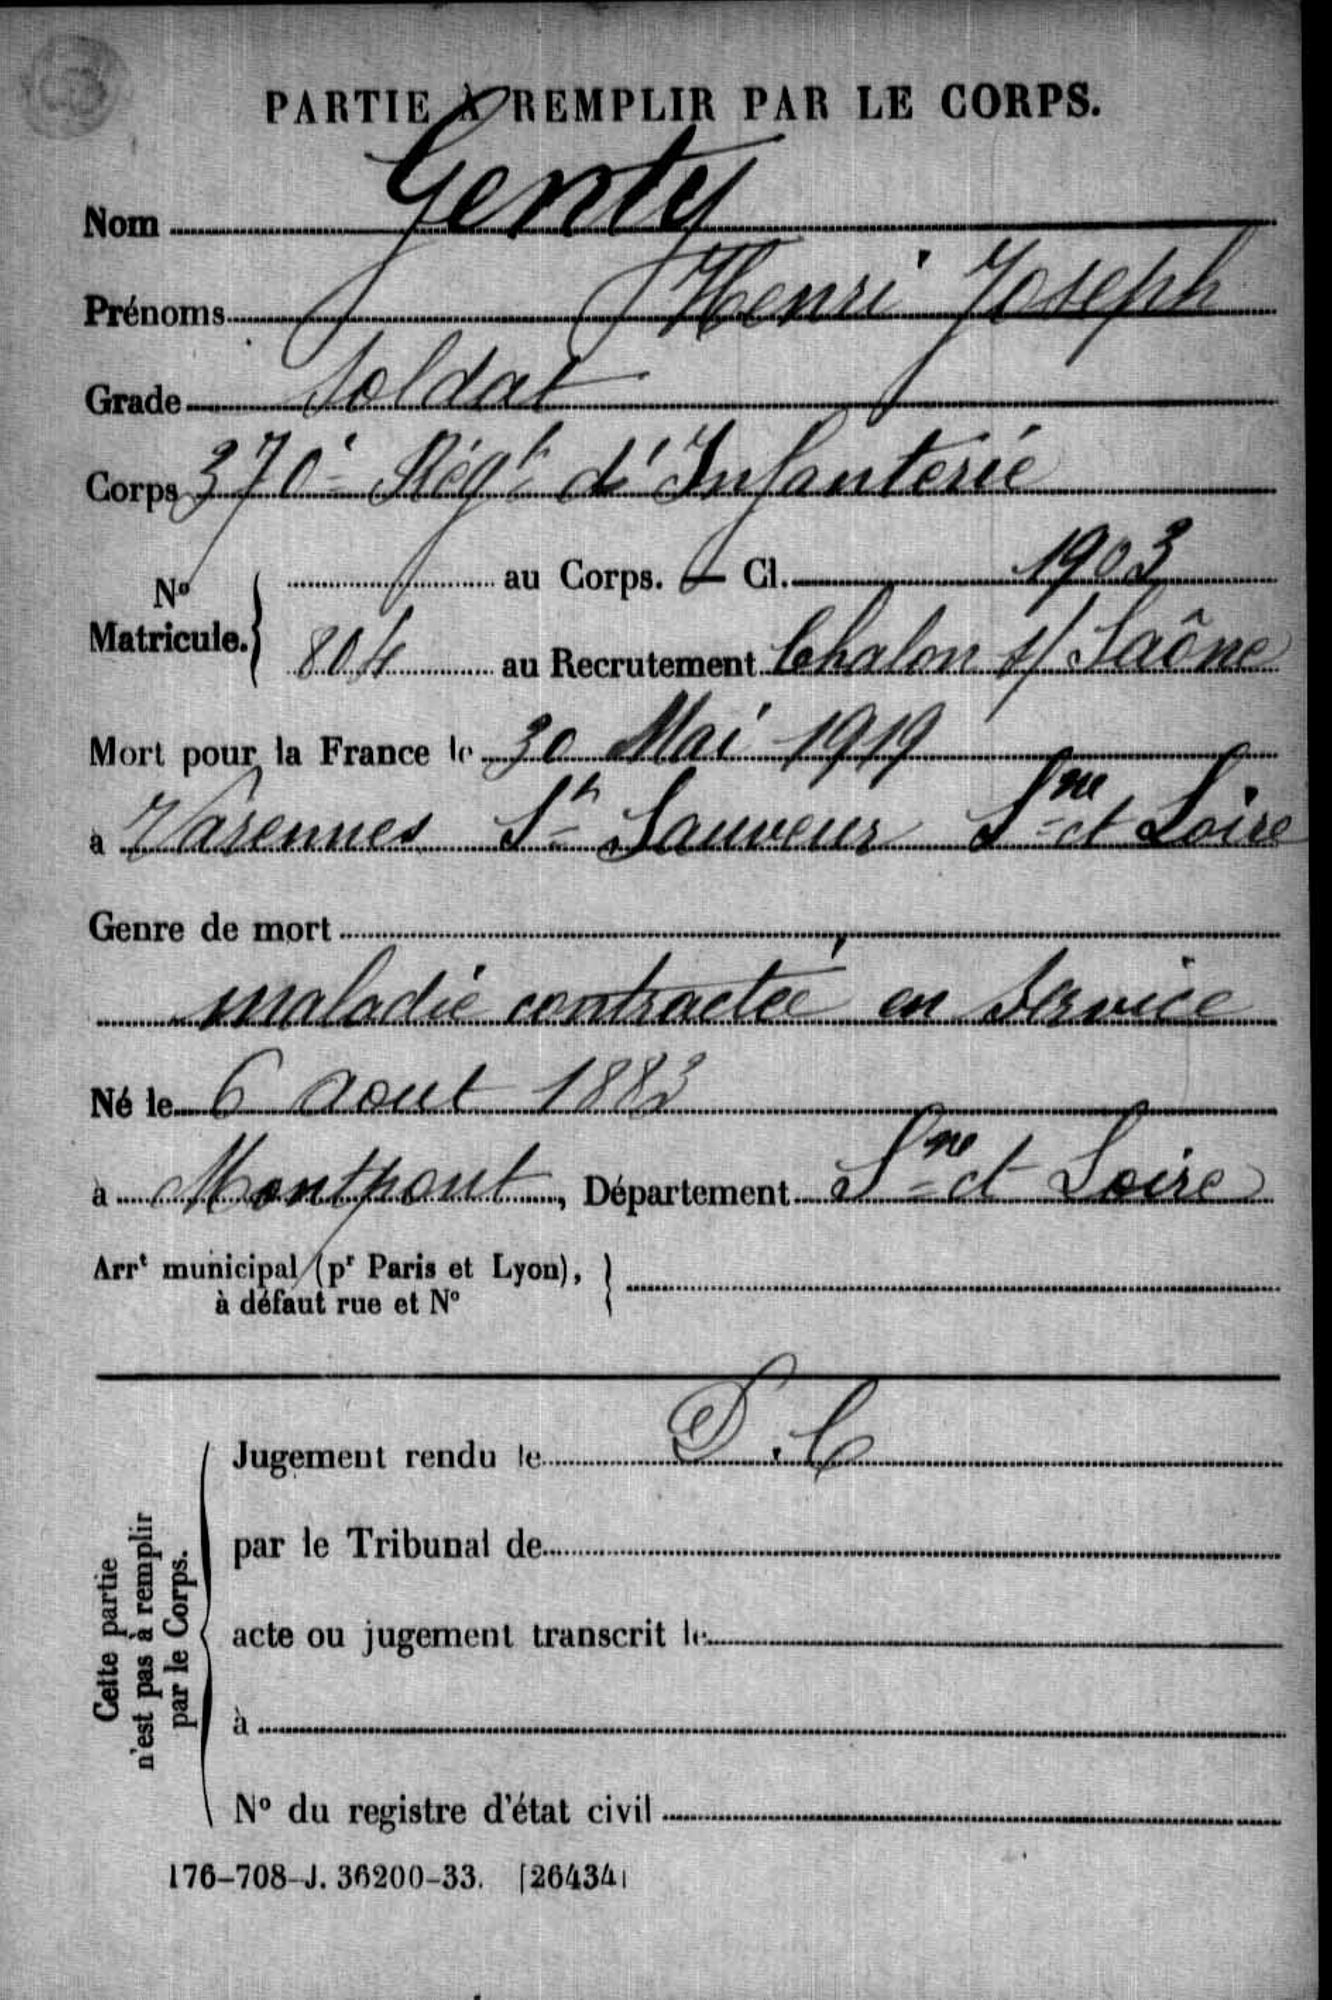 PARTIE À REMPLIR PAR LE CORPS.
Nom Genty
Prénoms Henri Joseph
Grade Soldat
Corps 370e Régt d'Infanterie
No Matricule. au Corps. — Cl. 1903
804 au Recrutement Chalon s/ Saône
Mort pour la France le 30 Mai 1919
à Varennes St Sauveur Sne et Loire
Genre de mort
maladie contractée en service
Né le 6 aout 1883
à Montpont, Département Sne et Loire
Arrt municipal (pr Paris et Lyon),
à défaut rue et No
Cette partie
n'est pas à remplir
par le Corps.
Jugement rendu le D.C
par le Tribunal de
acte ou jugement transcrit le
à
No du registre d'état civil
176-708-J. 36200-33. [26434]